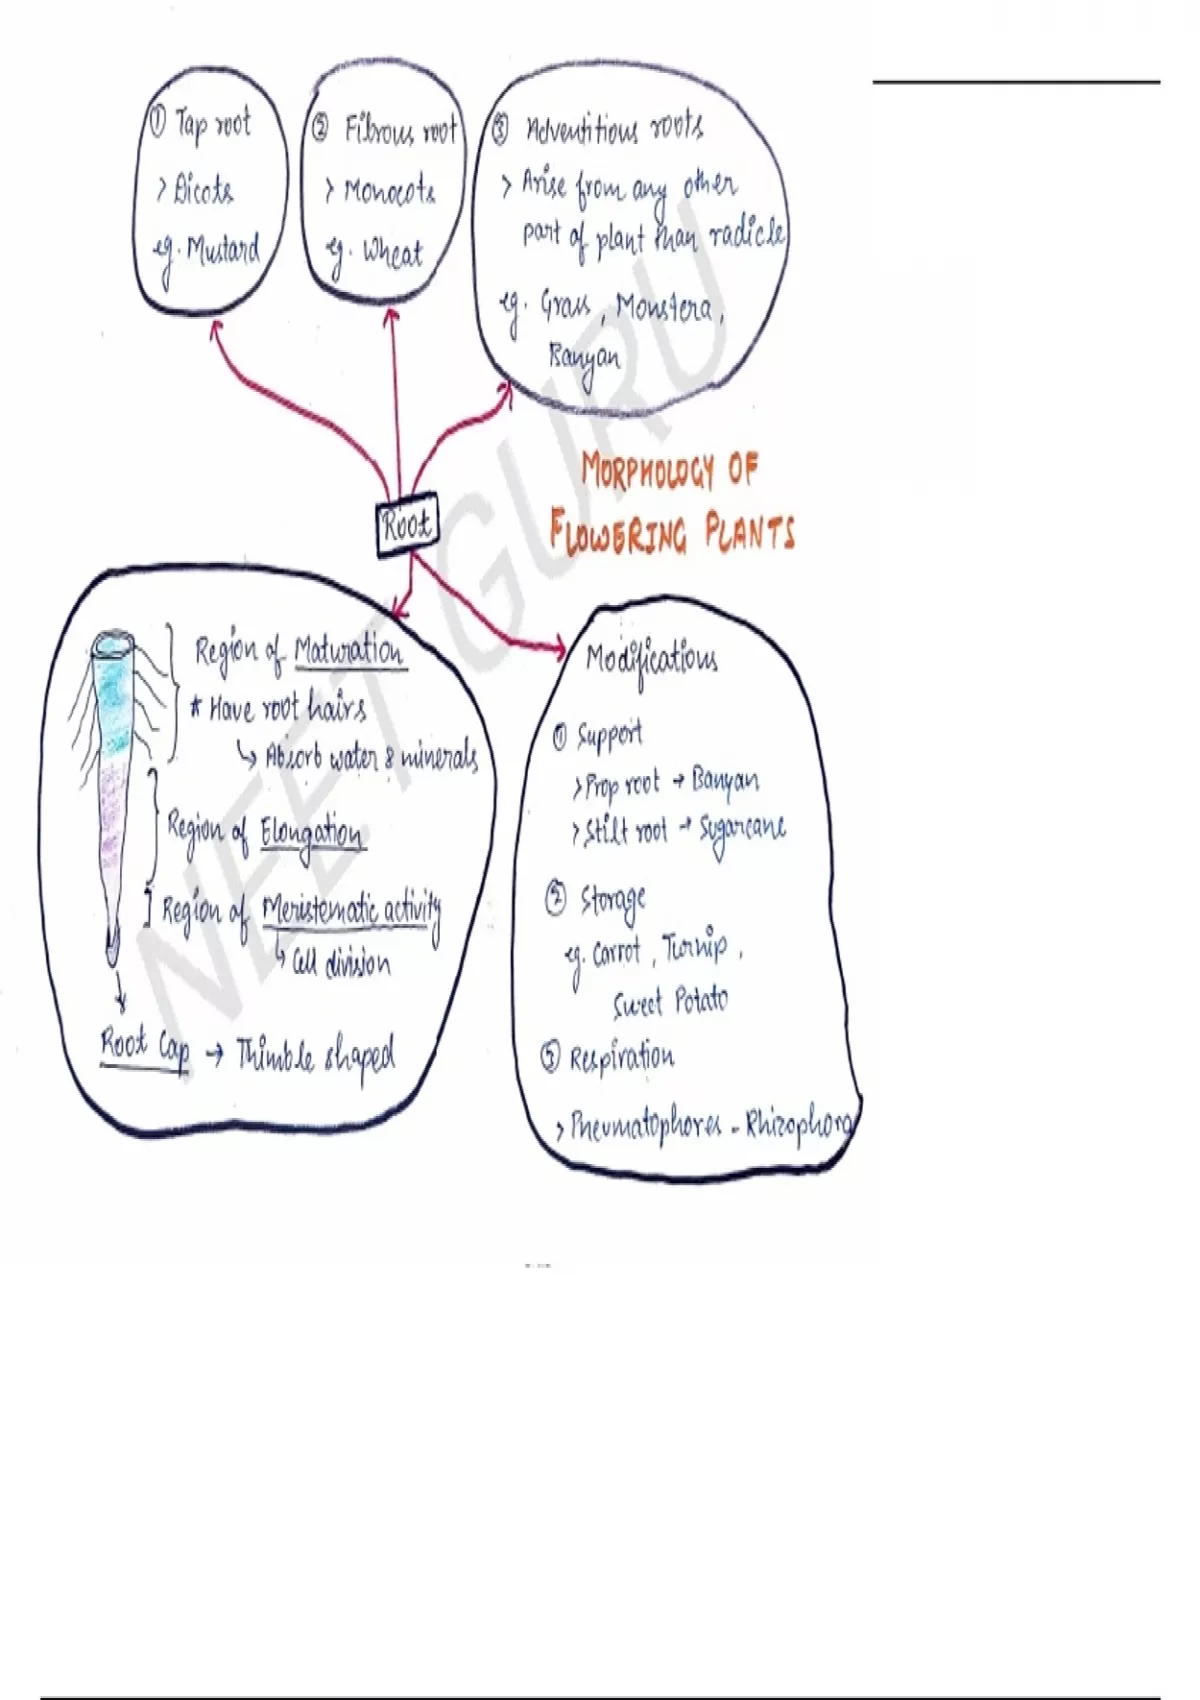 ① Tap root
> Dicots
eg. Mustard
② Fibrous root
> Monocots
eg. Wheat
③ Adventitious roots
> Arise from any other
part of plant than radicle
eg. Grass, Monstera,
Banyan
Root
MORPHOLOGY OF
FLOWERING PLANTS
Region of Maturation
* Have root hairs
↳ Absorb water & minerals
Region of Elongation
Region of Meristematic activity
↳ Cell division
Root Cap → Thimble shaped
Modifications
① Support
> Prop root → Banyan
> Stilt root → Sugarcane
② Storage
eg. Carrot, Turnip,
Sweet Potato
③ Respiration
> Pneumatophores - Rhizophora
NEET GURU